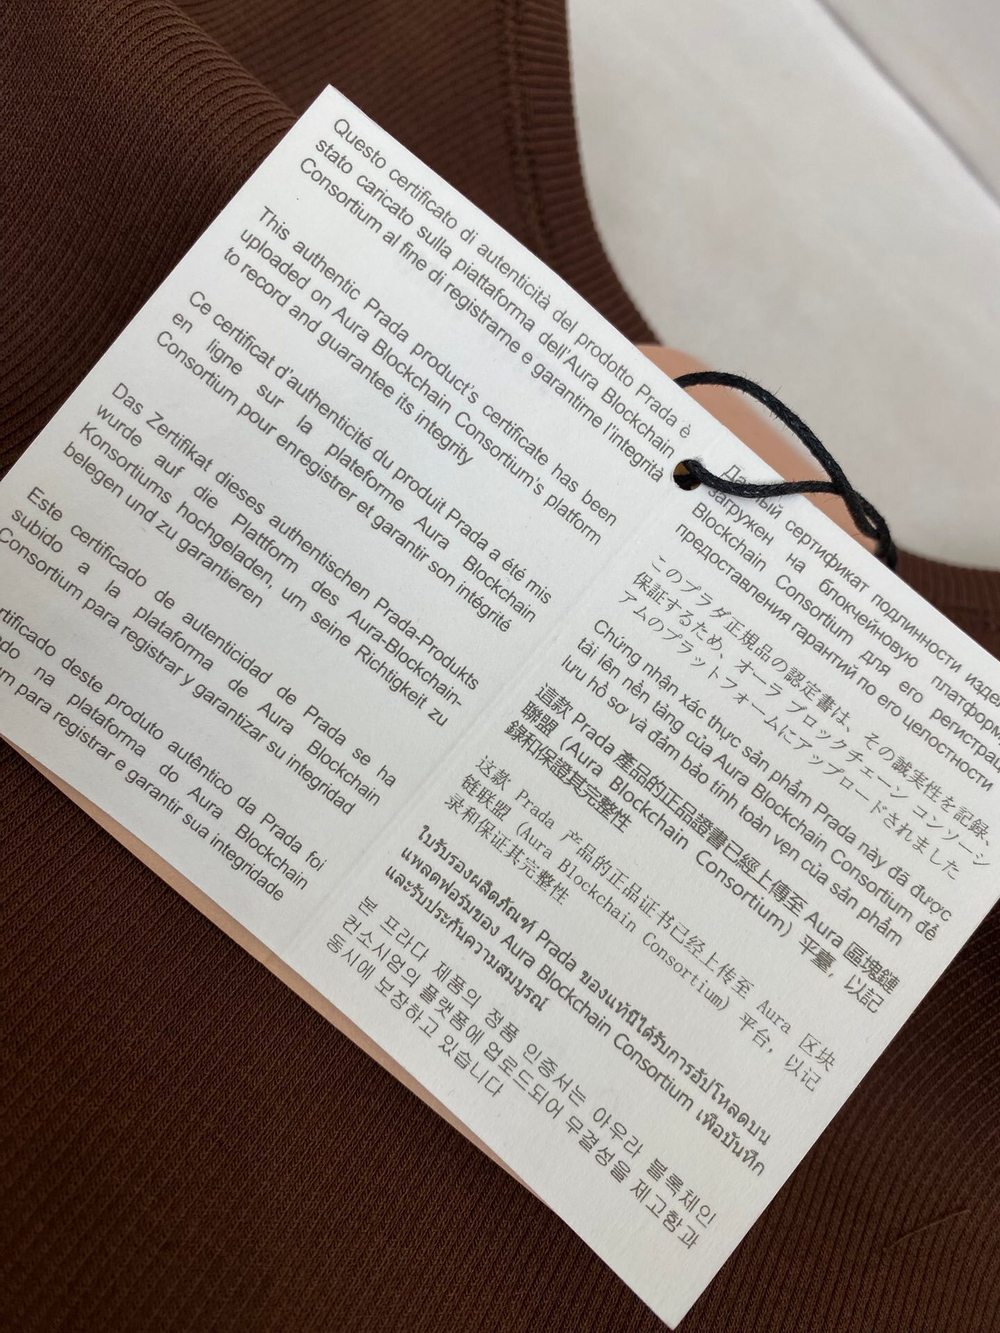 Questo certificato di autenticità del prodotto Prada è
stato caricato sulla piattaforma dell'Aura Blockchain
Consortium al fine di registrarne e garantirne l'integrità
This authentic Prada product's certificate has been
uploaded on Aura Blockchain Consortium's platform
to record and guarantee its integrity
Ce certificat d'authenticité du produit Prada a été mis
en ligne sur la plateforme Aura Blockchain
Consortium pour enregistrer et garantir son intégrité
Das Zertifikat dieses authentischen Prada-Produkts
wurde auf die Plattform des Aura-Blockchain-
Konsortiums hochgeladen, um seine Richtigkeit zu
belegen und zu garantieren
Este certificado de autenticidad de Prada se ha
subido a la plataforma de Aura Blockchain
Consortium para registrar y garantizar su integridad
deste produto autêntico da Prada foi
na plataforma do Aura Blockchain
para registrar e garantir sua integridade
Данный сертификат подлинности
загружен на блокчейновую
Blockchain Consortium для его
предоставления гарантий по его целостности
このプラダ正規品の認定書は、その誠実性を記録、
保証するため、オーラ ブロックチェーン コンソーシ
アムのプラットフォームにアップロードされました
Chứng nhận xác thực sản phẩm Prada này đã được
tải lên nền tảng của Aura Blockchain Consortium để
lưu hồ sơ và đảm bảo tính toàn vẹn của sản phẩm
這款 Prada 產品的正品證書已經上傳至 Aura 區塊鏈
聯盟 (Aura Blockchain Consortium) 平臺, 以記
錄和保證其完整性
这款 Prada 产品的正品证书已经上传至 Aura 区块
链联盟 (Aura Blockchain Consortium) 平台, 以记
录和保证其完整性
ใบรับรองผลิตภัณฑ์ Prada ของแท้นี้ได้รับการอัปโหลดบน
แพลตฟอร์มของ Aura Blockchain Consortium เพื่อบันทึก
และรับประกันความสมบูรณ์
본 프라다 제품의 정품 인증서는 아우라 블록체인
컨소시엄의 플랫폼에 업로드되어 무결성을 제고함과
동시에 보장하고 있습니다